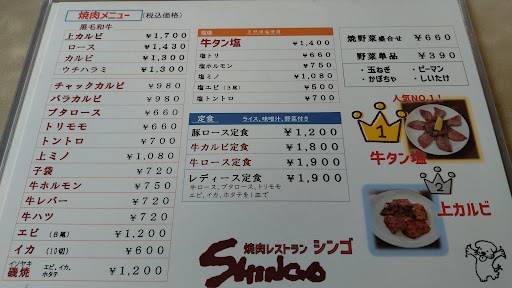 焼肉メニュー (税込価格)
黒毛和牛
上カルビ ￥1,700
ロース ￥1,430
カルビ ￥1,300
ウチハラミ ￥1,300
チャックカルビ ￥980
バラカルビ ￥980
ブタロース ￥660
トリモモ ￥660
トントロ ￥700
上ミノ ￥1,080
子袋 ￥720
牛ホルモン ￥750
牛レバー ￥720
牛ハツ ￥720
エビ (8尾) ￥1,200
イカ (10切) ￥600
イソヤキ
磯焼 エビ、イカ、ホタテ ￥1,200
塩焼 天然焼塩使用
牛タン塩 ￥1,400
塩トリ ￥660
塩ホルモン ￥750
塩ミノ ￥1,080
塩エビ (3尾) ￥500
塩トントロ ￥700
定食 ライス、味噌汁、野菜付き
豚ロース定食 ￥1,200
牛カルビ定食 ￥1,800
牛ロース定食 ￥1,900
レディース定食 ￥1,900
牛ロース、ブタロース、トリモモ
エビ、イカ、ホタテを1皿で
焼肉レストラン シンゴ
SHINGO
焼野菜盛合せ ￥660
野菜単品 ￥390
・玉ねぎ ・ピーマン
・かぼちゃ ・しいたけ
人気NO.1!
1
牛タン塩
2
上カルビ